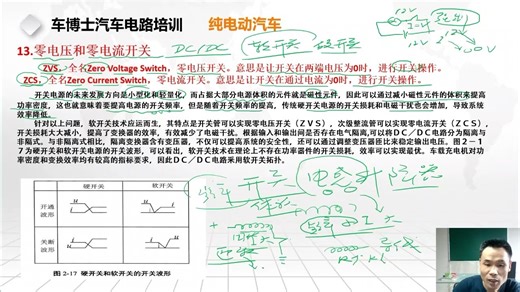 车博士汽车电路培训 纯电动汽车
13.零电压和零电流开关 DC/DC 软开关 硬开关
ZVS，全名Zero Voltage Switch，零电压开关。意思是让开关在两端电压为0时，进行开关操作。
ZCS，全名Zero Current Switch，零电流开关。意思是让开关在通过电流为0时，进行开关操作。
开关电源的未来发展方向是小型化和轻量化，而占据大部分电源体积的元件就是磁性元件，因此可以通过减小磁性元件的体积来提高
功率密度，这也就意味着要提高电源的开关频率，但是随着开关频率的提高，传统硬开关电源的开关损耗和电磁干扰也会增加，导致系统
效率降低。
针对以上问题，软开关技术应运而生，其特点是开关管可以实现零电压开关（ZVS），次级整流管可以实现零电流开关（ZCS），
开关损耗大大减小，提高了变换器的效率，有效减小了电磁干扰。根据输入和输出间是否存在电气隔离，可以将DC／DC电路分为隔离与
非隔离式。与非隔离式相比，隔离变换器含有变压器，不仅可以提高系统的安全性，还可以通过调整变压器匝比来稳定输出电压。图2－1
7为硬开关和软开关电源的开关波形，可以看出，软开关技术在理论上不存在功率器件的开关损耗，效率可以实现最优。车载充电机对功
率密度和变换效率均有较高的指标要求，因此DC／DC电路采用软开关拓扑。
硬开关 软开关
开通
波形
关断
波形
u i
图 2-17 硬开关和软开关的开关波形
12V
12V
开关